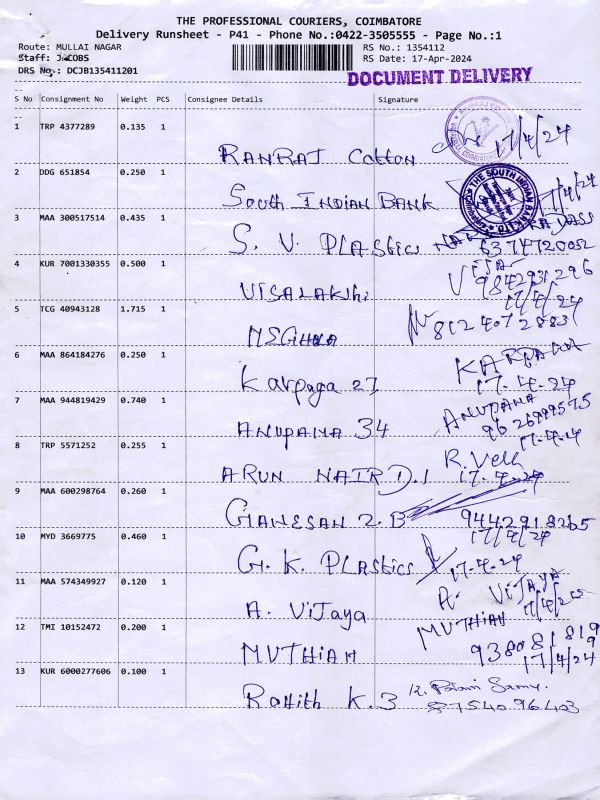 THE PROFESSIONAL COURIERS, COIMBATORE
Delivery Runsheet - P41 - Phone No.:0422-3505555 - Page No.:1
Route: MULLAI NAGAR RS No.: 1354112
Staff: JACOBS RS Date: 17-Apr-2024
DRS No.: DCJB135411201 DOCUMENT DELIVERY
S No Consignment No Weight PCS Consignee Details Signature
1 TRP 4377289 0.135 1
RANRAJ Cotton 17/4/24
2 DDG 651854 0.250 1
South INDIAN BANK THE SOUTH INDIAN BANK LTD 17/4/24
3 MAA 300517514 0.435 1
S. V. PLASTICS 6374720052
4 KUR 7001330355 0.500 1
VISALAKHI 9842931296
17/4/24
5 TCG 40943128 1.715 1
MEGHNA 8124072883
6 MAA 864184276 0.250 1
Karpaga 27 KARPAGA
17-4-24
7 MAA 944819429 0.740 1
ANUPAMA 34 ANUPAMA
9626999575
17-4-24
8 TRP 5571252 0.255 1
ARUN NAIR D.1 R. Vell
17-4-24
9 MAA 600298764 0.260 1
GANESAN 2.B 9442918265
17/4/24
10 MYD 3669775 0.460 1
G. K. PLASTICS 17-4-24
11 MAA 574349927 0.120 1
A. VIJaya A. VIJAYA
12 TMI 10152472 0.200 1
MUTHIAH MUTHIAH
9380818199
17/4/24
13 KUR 6000277606 0.100 1
Rohith K.3 K.